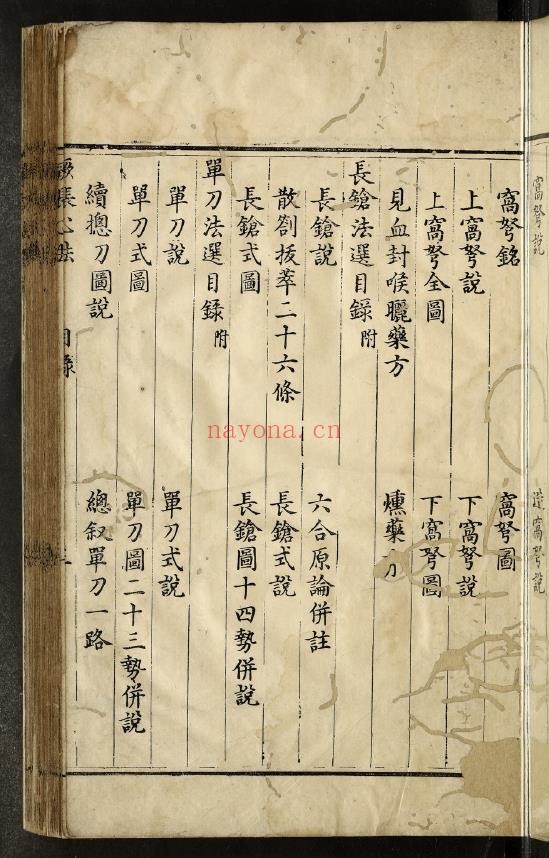 窩弩銘　窩弩圖
上窩弩說　下窩弩說
上窩弩全圖　下窩弩圖
見血封喉曬藥方　燻藥方
長鎗法選目錄附
長鎗說　六合原論併註
散劄拔萃二十六條　長鎗式說
長鎗式圖　長鎗圖十四勢併說
單刀法選目錄附
單刀說　單刀式說
單刀式圖　單刀圖二十三勢併說
續總刀圖說　總叙單刀一路
蹶張心法　目錄
nayona.cn